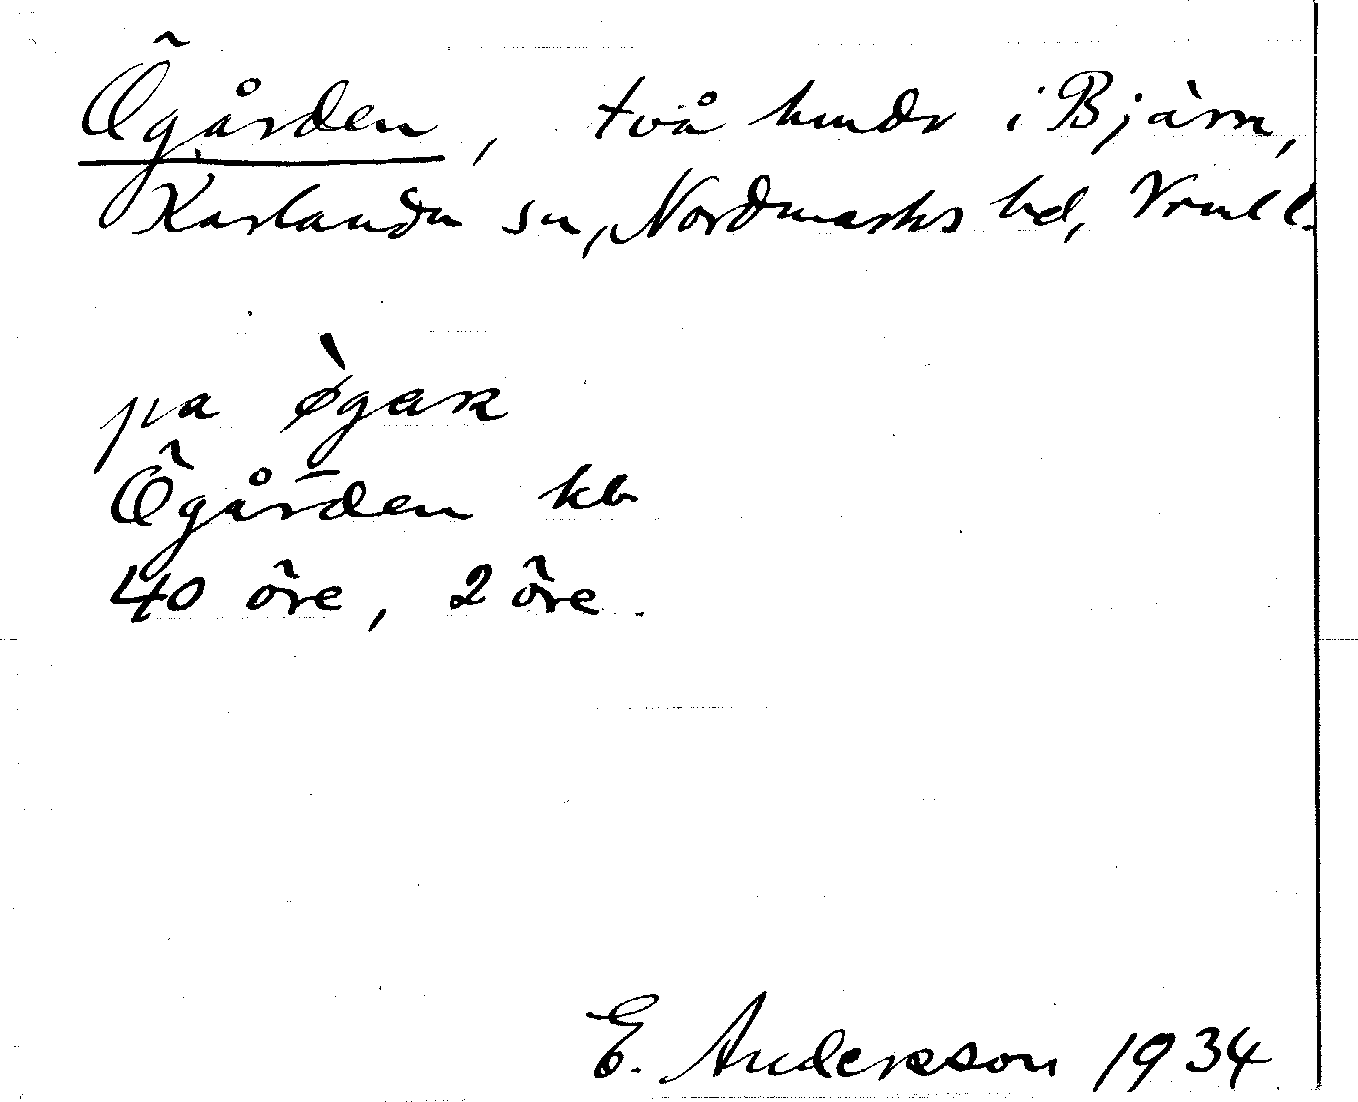 Ögården, två hmdr i Bjärn,
Karlanda sn, Nordmarks hd, Vrml l.
pa øgaʀ
Ögården kb
40 öre, 2 öre.
E. Andersson 1934